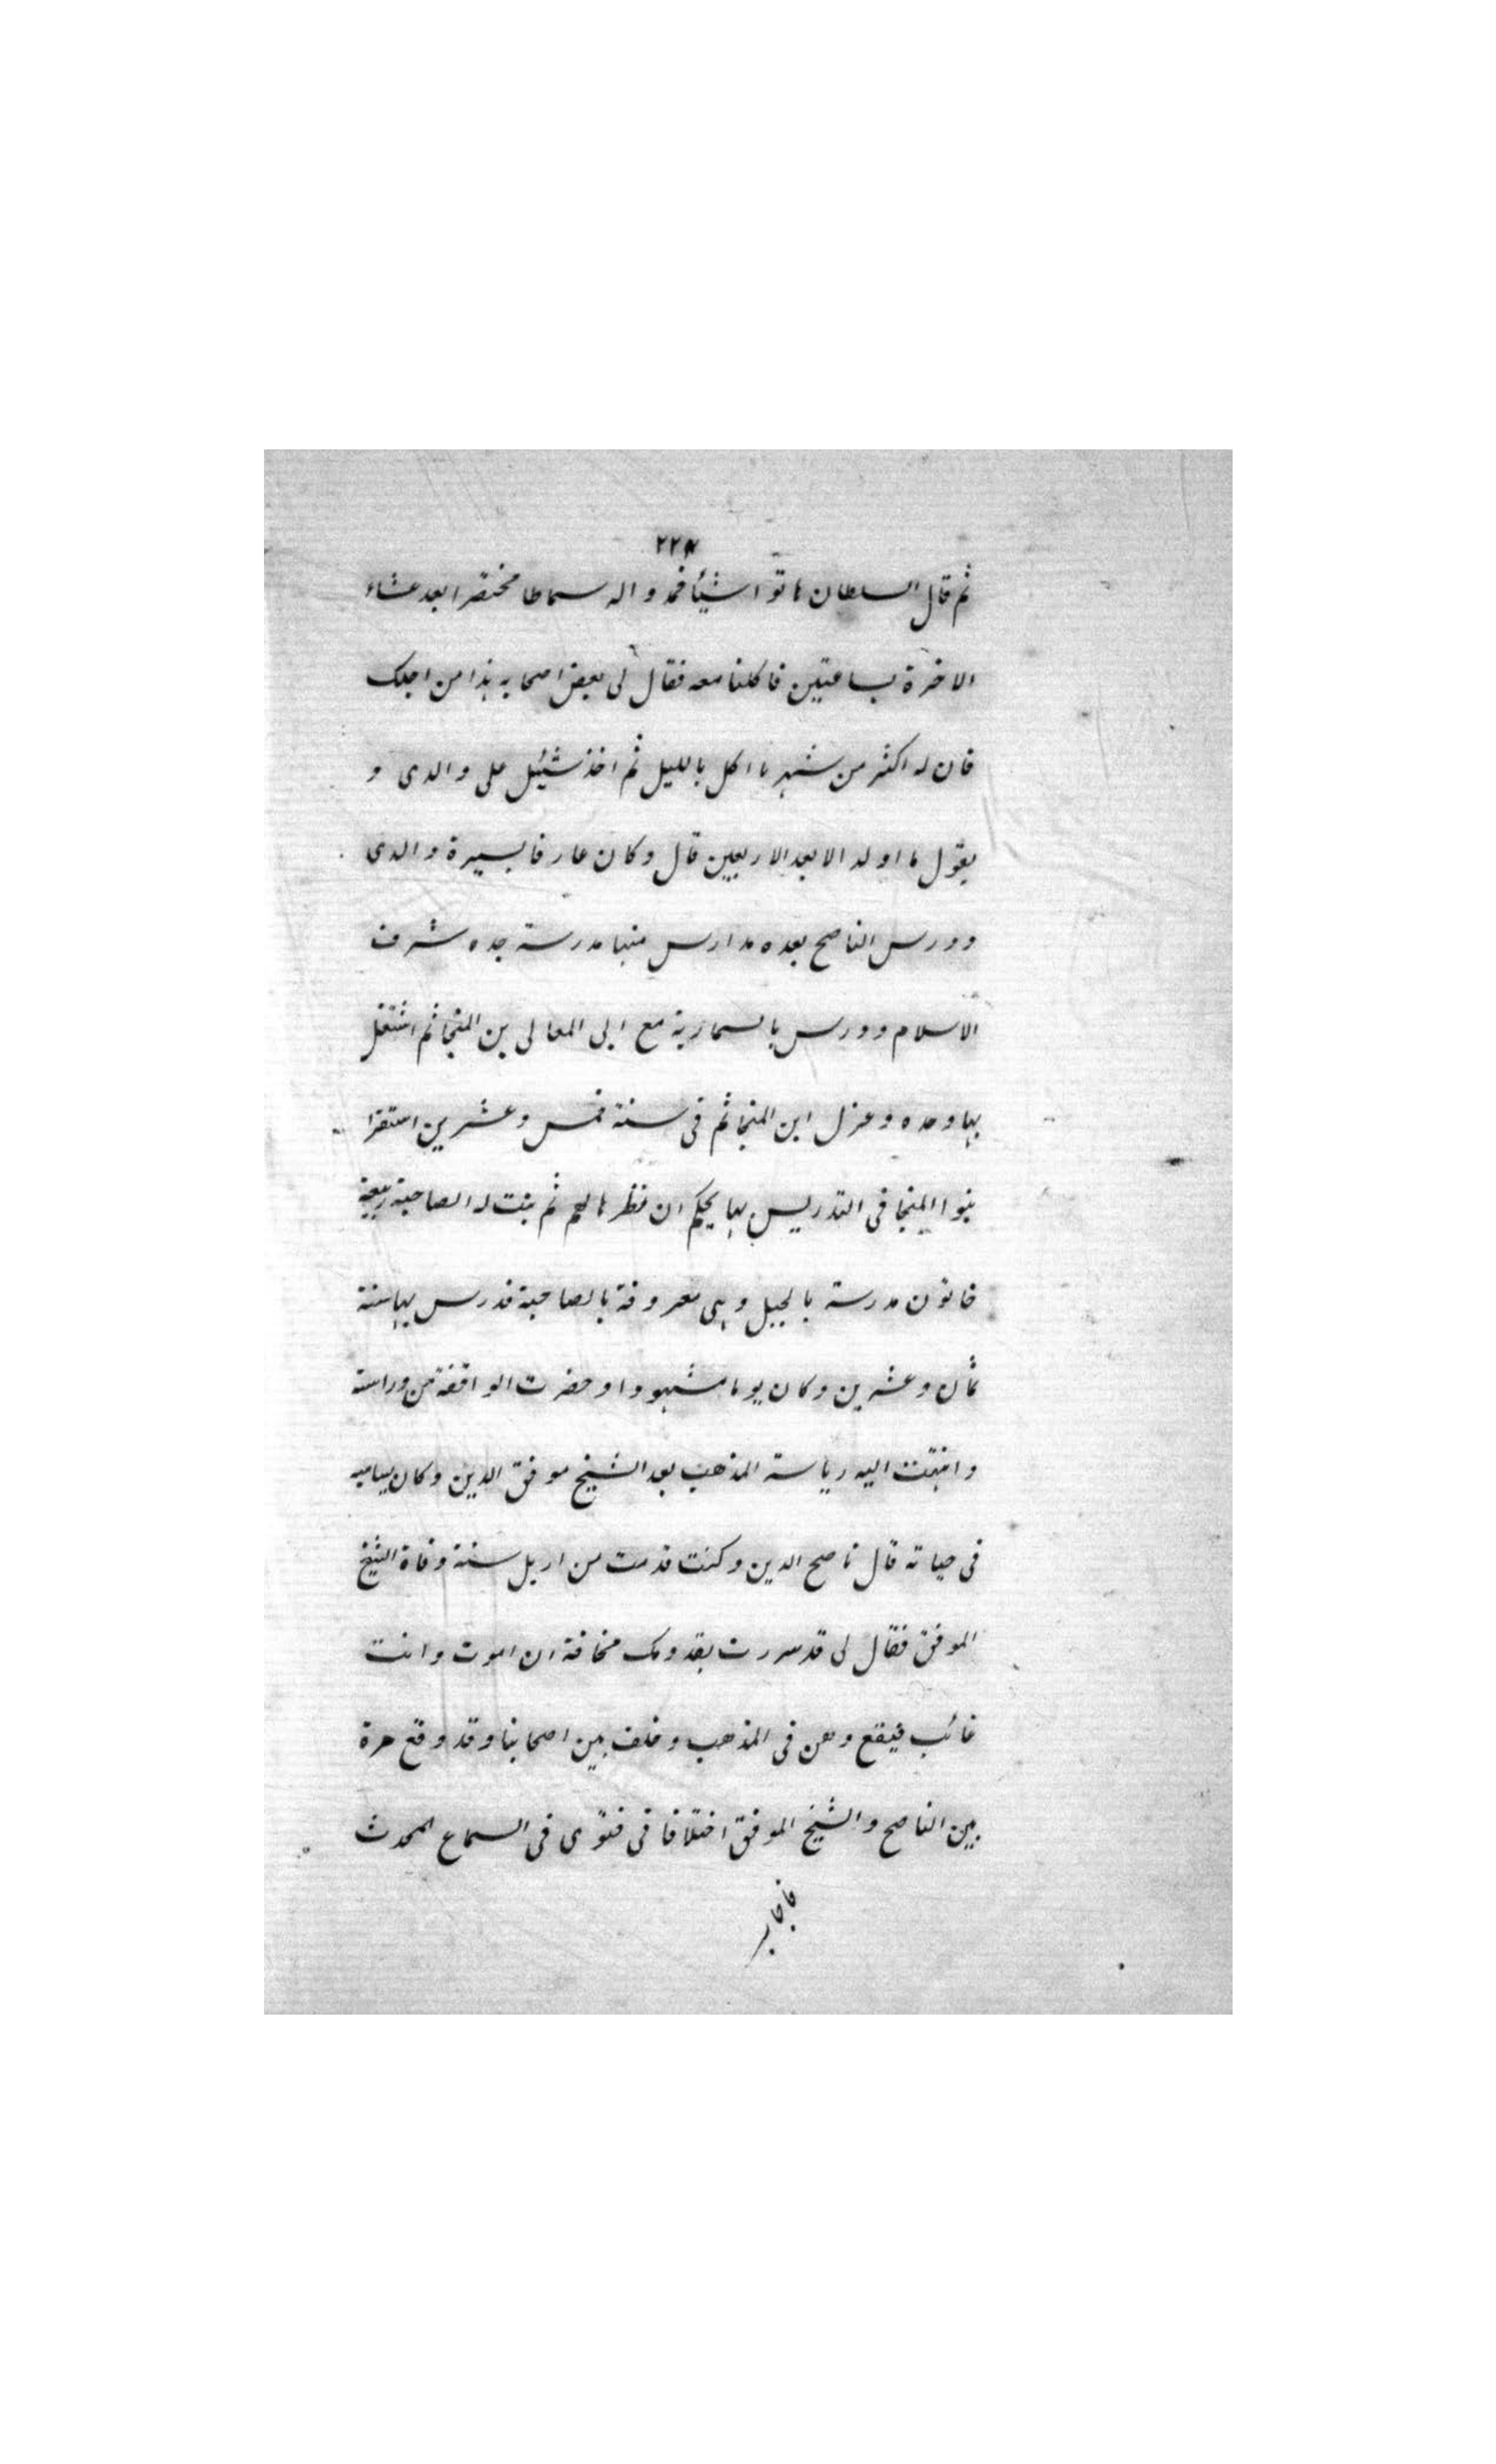 ٢٢٨
ثم قال السلطان هاتوا شيئا فمدوا له سماطا مختصرا بعد عشاء
الاخرة بساعتين فاكلنا معه فقال لى بعض اصحابه هذا من اجلك
فان له اكثر من شهر ما اكل بالليل ثم اخذ يثنى على والدى و
يقول ما اولد الا بعد الاربعين قال وكان عارفا بسيرة والدى
ودرس الناصح بعده مدارس منها مدرسة جده شرف
الاسلام ودرس بالسمارية مع ابى المعالى بن المنجا ثم اشتغل
بها وحده وعزل ابن المنجا ثم فى سنة خمس وعشرين استقرا
بنوا المنجا فى التدريس بها بحكم ان نظرها لهم ثم بنت له الصاحبة ربيعة
خاتون مدرسة بالجبل وهى معروفة بالصاحبة فدرس بها سنة
ثمان وعشرين وكان يوما مشهودا وحضرت الواقفة من وراستة
وانتهت اليه رياسة المذهب بعد الشيخ موفق الدين وكان يساميه
فى حياته قال ناصح الدين وكنت قدمت من اربل سنة وفاة الشيخ
الموفق فقال لى قد سررت بقدومك مخافة ان اموت وانت
غائب فيقع وهن فى المذهب وخلف بين اصحابنا وقد وقع مرة
بين الناصح والشيخ الموفق اختلافا فى فتوى فى السماع المحدث
فاجاب